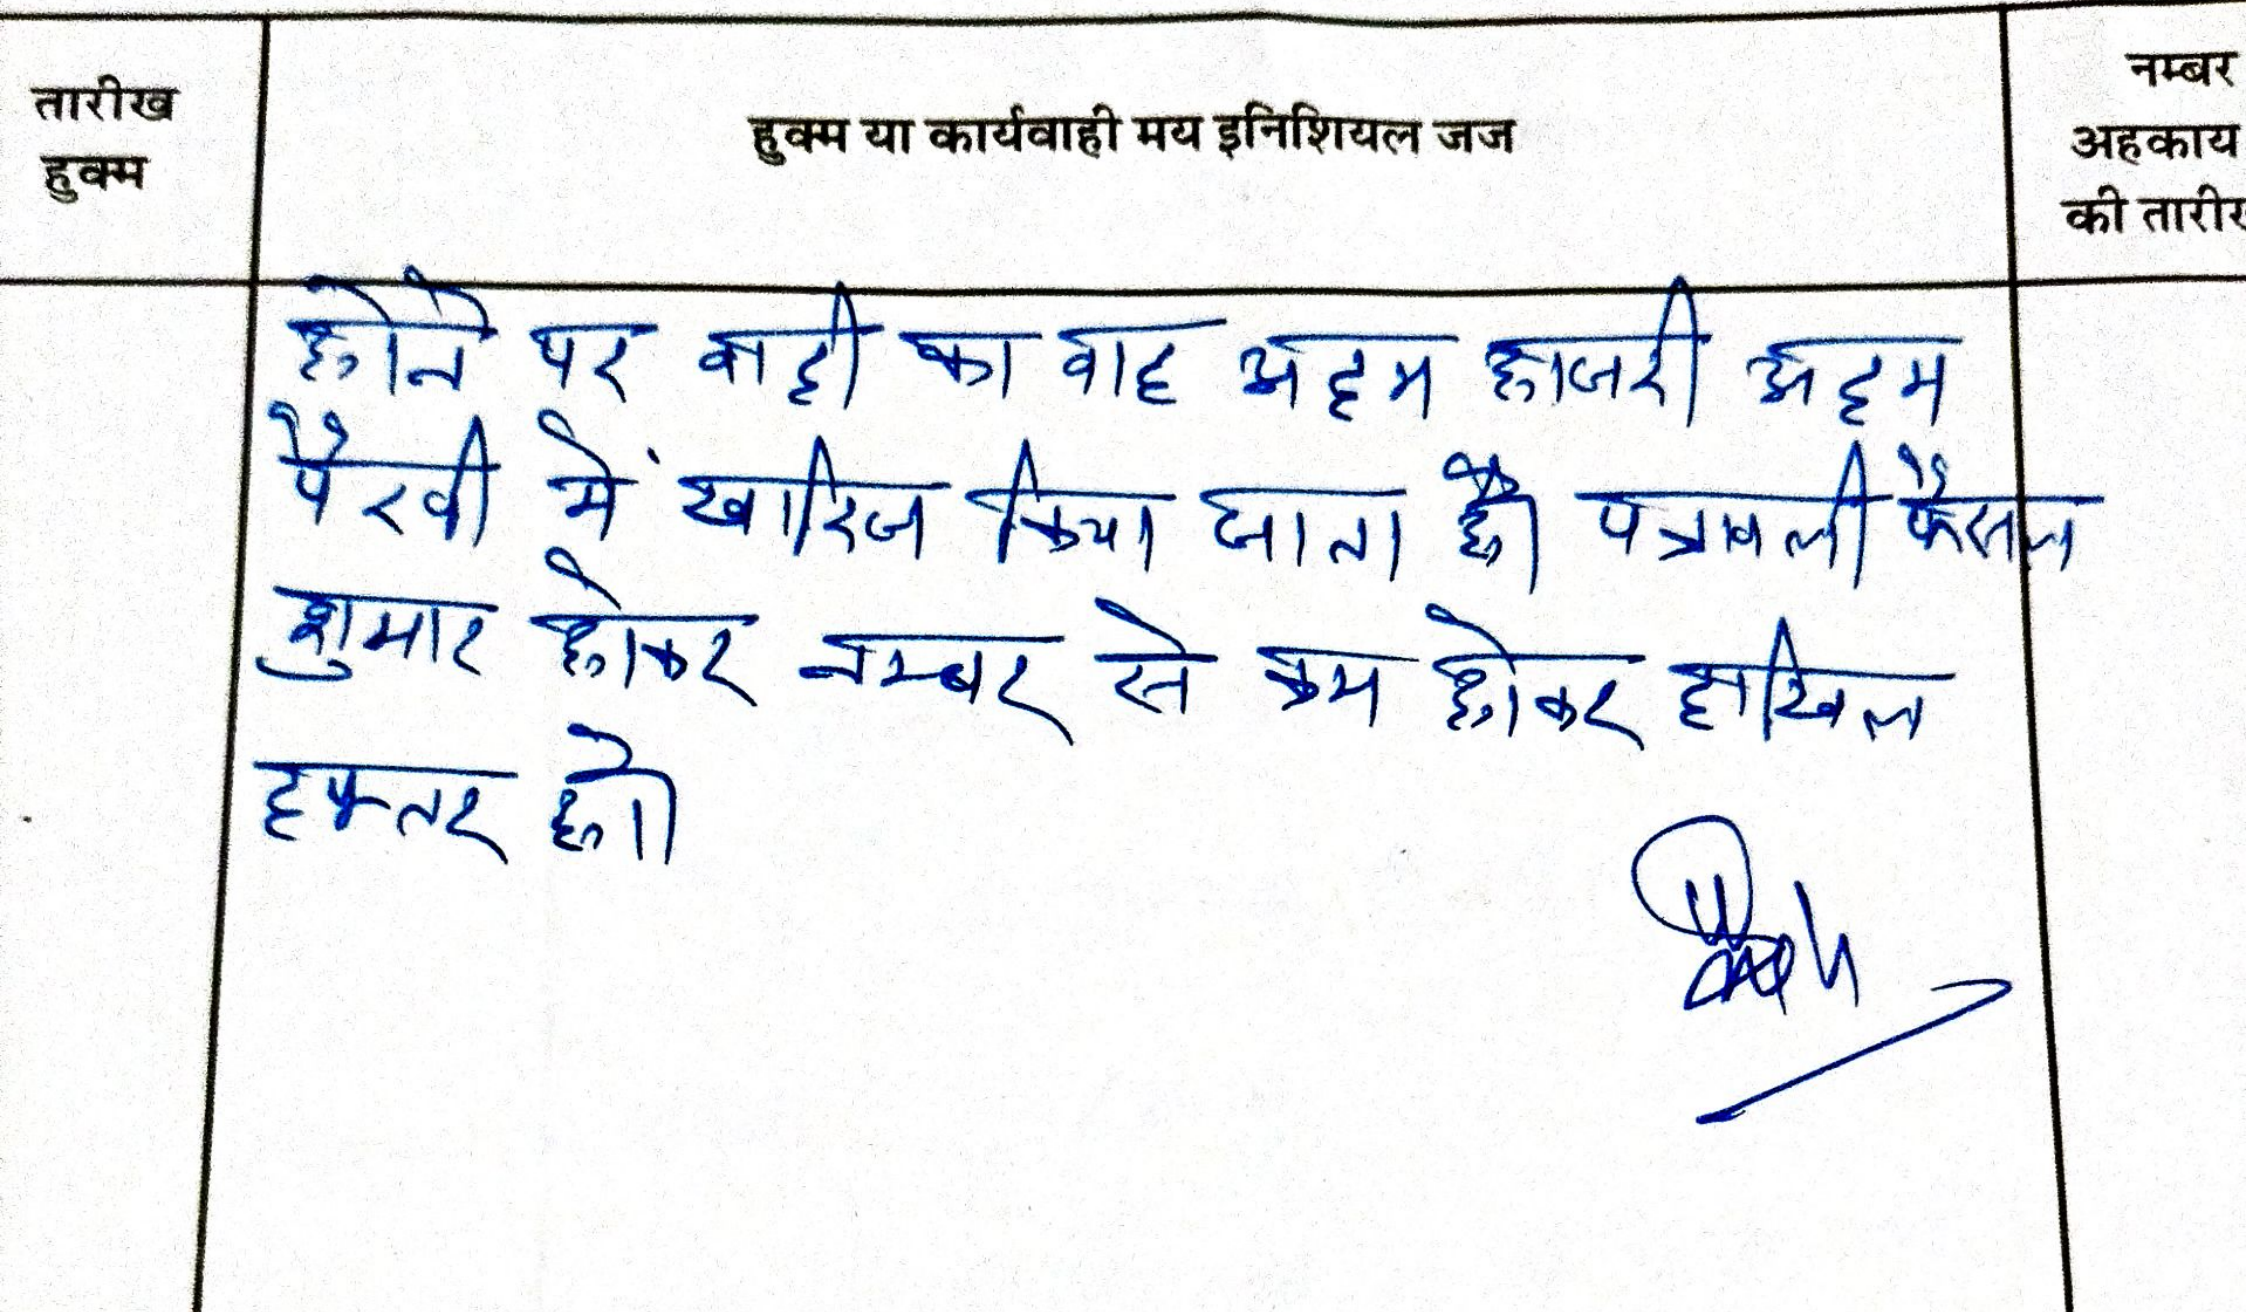 तारीख
हुक्म
हुक्म या कार्यवाही मय इनिशियल जज
नम्बर
अहकाय
की तारीख
होने पर वादी का वाद अदम हाजरी अदम
पैरवी में खारिज किया जाता है। पत्रावली फैसल
शुमार होकर नम्बर से कम होकर दाखिल
दफ्तर हो।